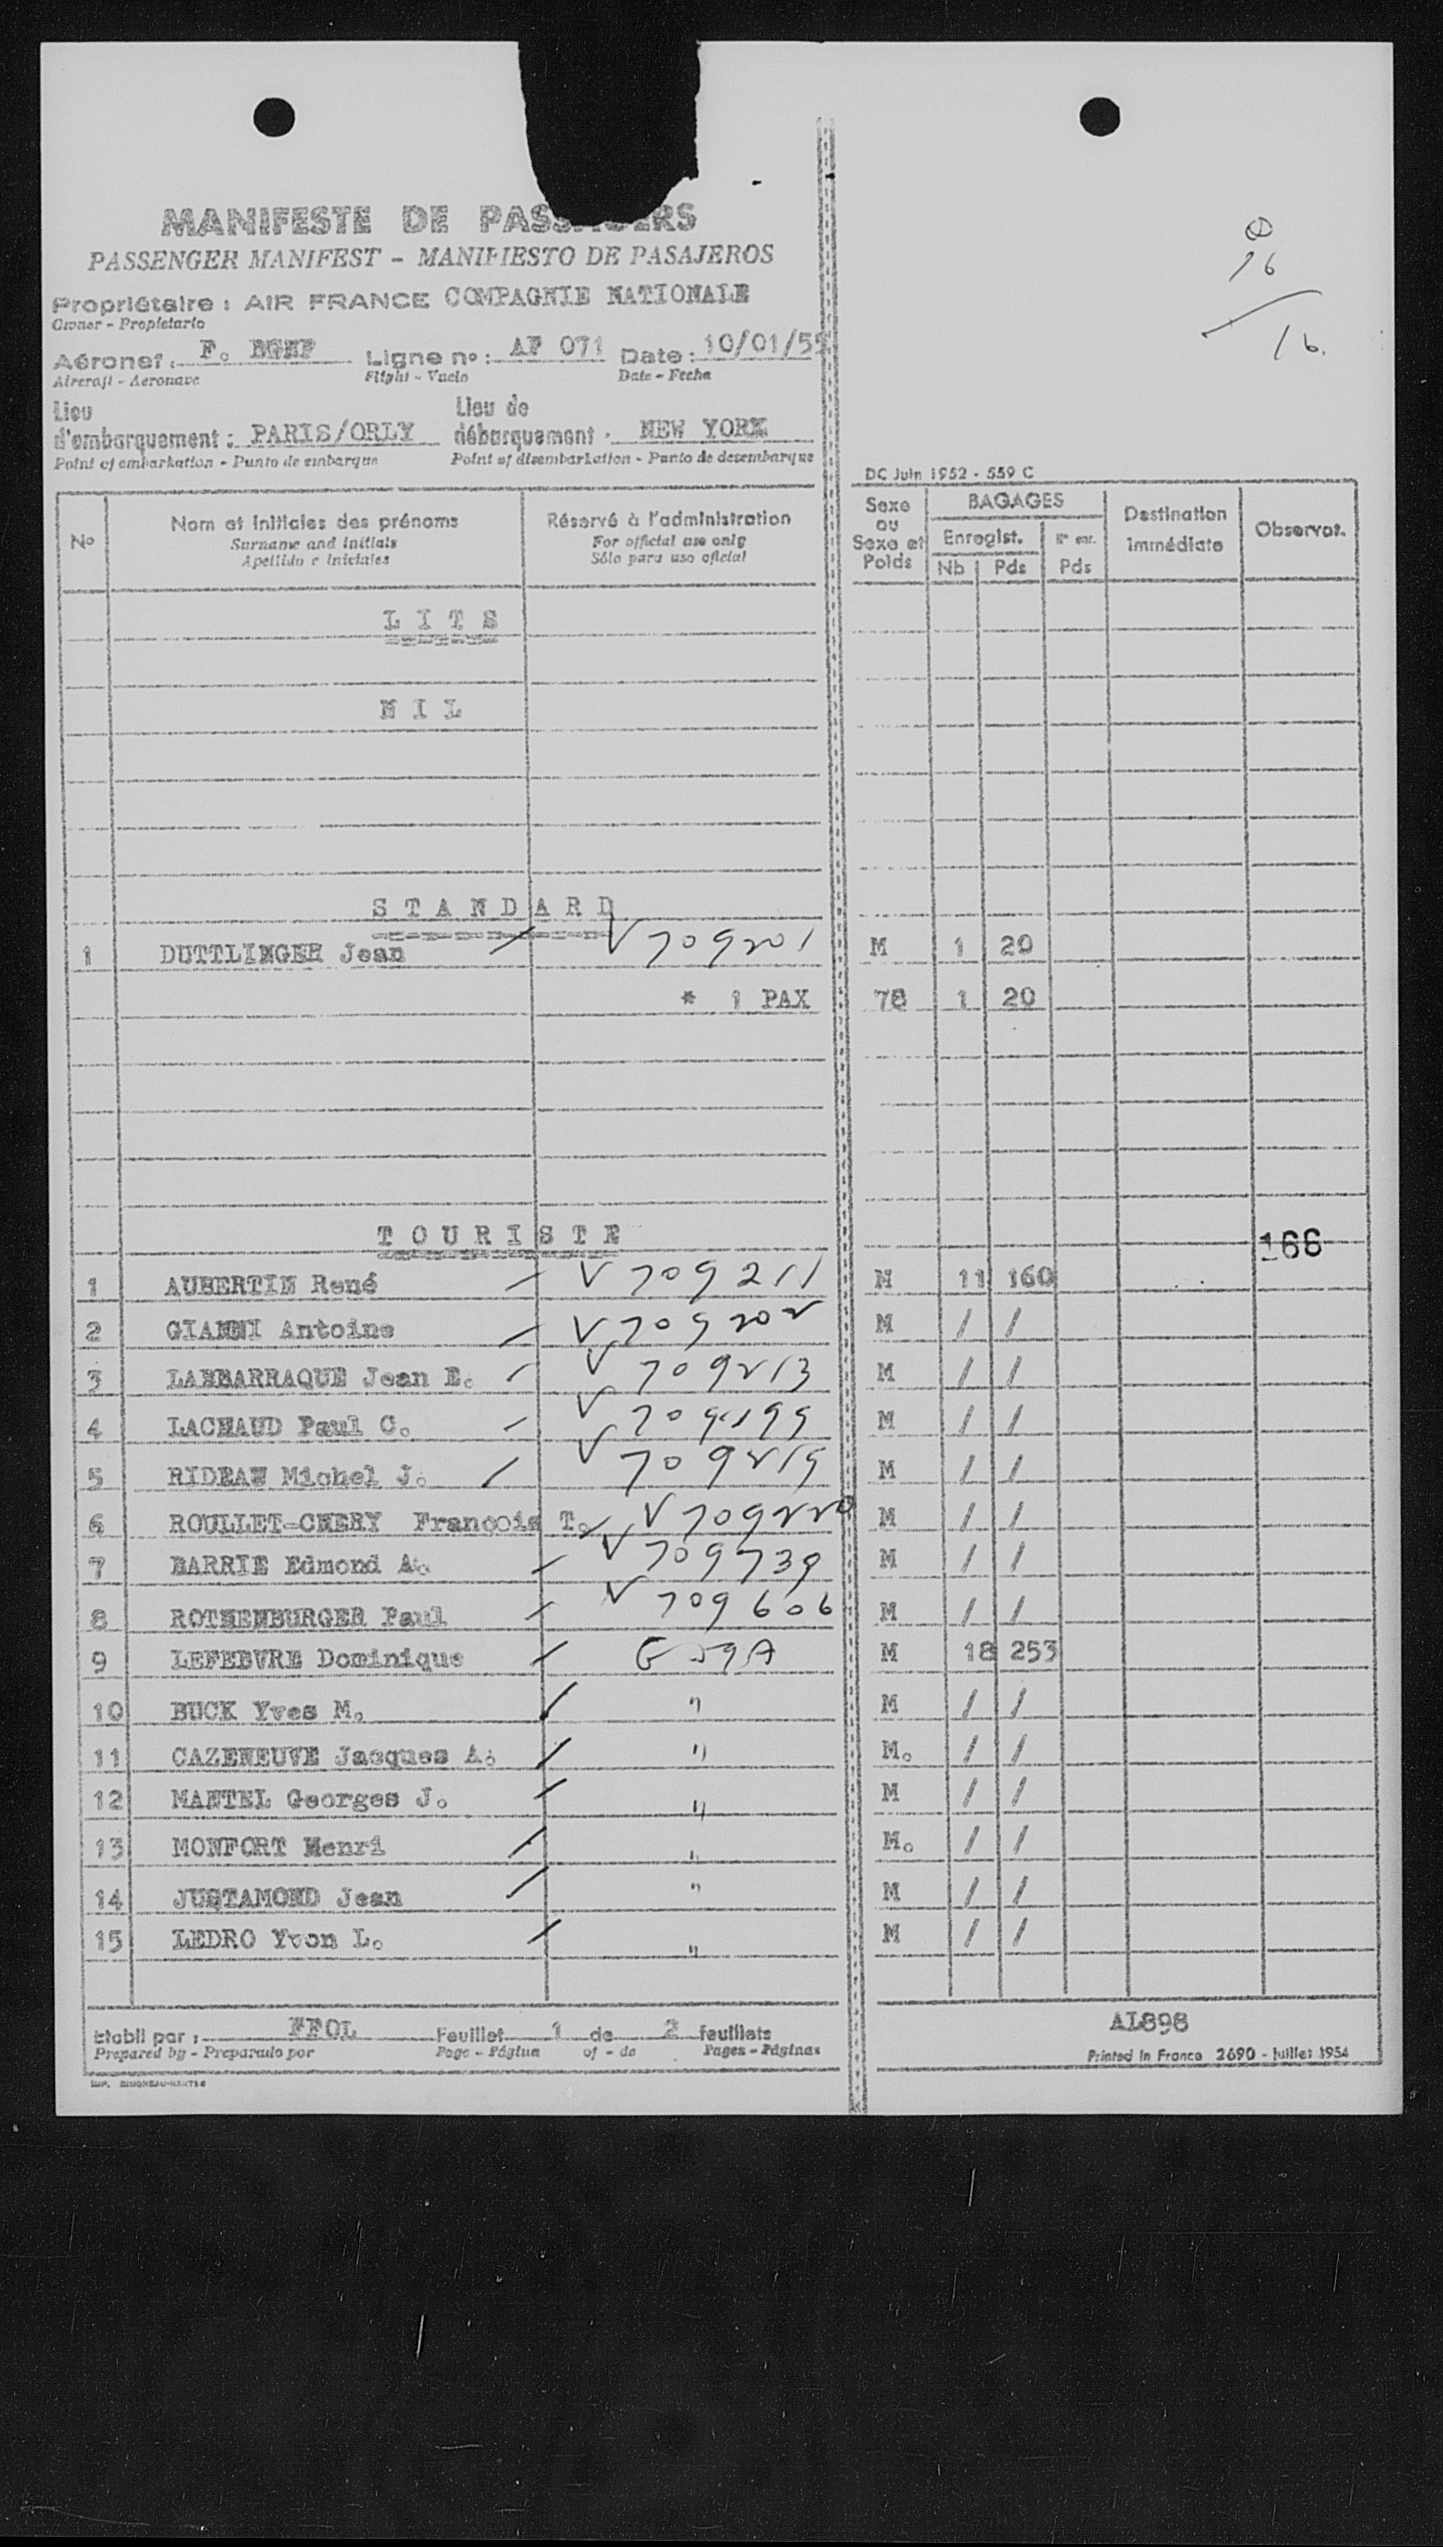 MANIFESTE DE PASSAGERS
PASSENGER MANIFEST - MANIFIESTO DE PASAJEROS
16
16.
Propriétaire : AIR FRANCE COMPAGNIE NATIONALE
Owner - Propietario
Aéronef : F. BGNF Ligne n° : AF 071 Date : 10/01/55
Aircraft - Aeronave Flight - Vuelo Date - Fecha
Lieu d'embarquement : PARIS/ORLY Lieu de débarquement : NEW YORK
Point of embarkation - Punto de embarque Point of disembarkation - Punto de desembarque
DC Juin 1952 - 559 C
N° Nom et initiales des prénoms Réservé à l'administration Sexe ou Sexe et Poids BAGAGES Destination immédiate Observat.
Surname and initials For official use only Enregist. N° enr.
Apellido e iniciales Sólo para uso oficial Nb Pds Pds
LITS
NIL
STANDARD
1 DUTTLINGER Jean V 709201 M 1 20
* 1 PAX 78 1 20
TOURISTE
166
1 AUBERTIN René V 709211 M 11 160
2 GIANNI Antoine V 709202 M / /
3 LABBARRAQUE Jean E. V 709213 M / /
4 LACHAUD Paul C. V 709199 M / /
5 RIDEAU Michel J. V 709219 M / /
6 ROULLET-CHERY François T. V 709220 M / /
7 BARRIE Edmond A. V 709739 M / /
8 ROTHENBURGER Paul V 709606 M / /
9 LEFEBVRE Dominique M 18 253
10 BUCK Yves M. " M / /
11 CAZENEUVE Jacques A. " M. / /
12 MANTEL Georges J. " M / /
13 MONFORT Henri " M. / /
14 JUSTAMOND Jean " M / /
15 LEDRO Yvon L. " M / /
Etabli par : FFOL Feuillet 1 de 2 feuillets AL898
Prepared by - Preparado por Page - Página of - de Pages - Páginas Printed in France 2690 - Juillet 1954